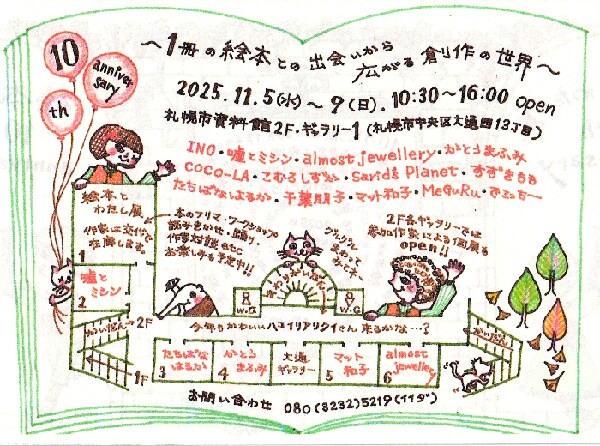 10
th
anniver
sary
～1冊の絵本との出会いから
広がる創作の世界～
2025.11.5(水)～9(日).10:30～16:00 open
札幌市資料館2F・ギャラリー1(札幌市中央区大通西13丁目)
INO・嘘とミシン・almost jewellery・かとうまふみ
COCO-LA・こむろしずか・Sand's Planet・すずきもも
たちばなはるか・千葉朋子・マット和子・MeGuRu・
絵本と
わたし展
作家は交代で
在廊します
1
本のフリマ・ワークショップ
読みきかせ・踊り・
作家対談etc
お楽しみも予定中!!
2F各ギャラリーでは
参加作家による個展も
open!!
嘘と
ミシン
2
かいだん→2F
W.C
W.C
今年もかわいいハイイロアリクイさん来るかな…?
かいだん
1F
たちばな
はるか
3
かとう
まふみ
4
大通
ギャラリー
マット
和子
5
almost
jewellery
6
お問い合わせ 080(8232)5219(イイダ)